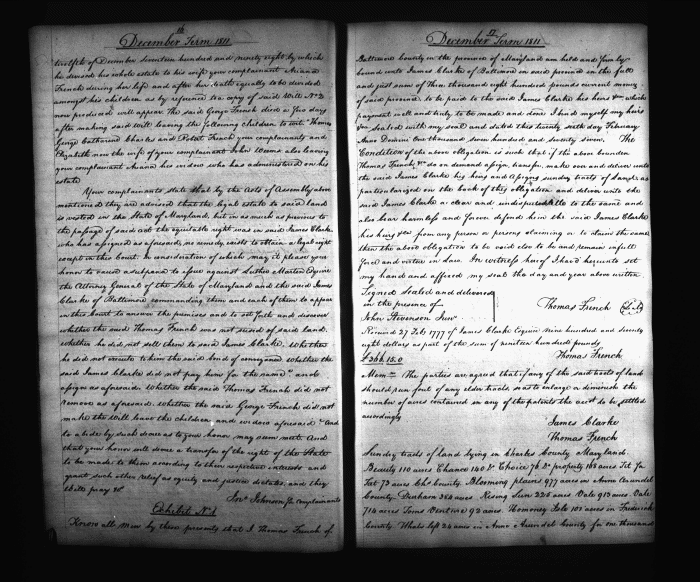 16
December Term 1811
twelfth of December seventeen hundred and ninety eight by which
he devised his whole estate to his wife your complainant Ariana
French during her life and after her death equally to be divided
amongst his children as by reference to a copy of said Will No 2
now produced will appear. The said George French died a few days
after making said will leaving the following children to wit: Thomas
George Catharine Charles and Robert French your complainants and
Elizabeth now the wife of your complainant John Weems and also leaving
your complainant Ariana his widow who has administered on his
estate
Your complainants state that by the Acts of Assembly above
mentioned they are advised that the legal estate to said land
is vested in the State of Maryland, but in as much as previous to
the passage of said act the equitable right was in said James Clarke
who has assigned as aforesaid, no remedy exists to obtain a legal right
except in this Court. In consideration of which may it please your
honor to cause a subpœna to issue against Luther Martin Esquire
the Attorney General of the State of Maryland and the said James
Clarke of Baltimore commanding them and each of them to appear
in this Court to answer the premises and to set forth and discover
whether the said Thomas French was not siezed of said land.
Whether he did not sell them to said James Clarke. Whether
he did not execute to him the said bond of conveyance. Whether the
said James Clarke did not pay him for the same and
assign as aforesaid. Whether the said Thomas French did not
remove as aforesaid. Whether the said George French did not
make the will leave the children and widow aforesaid And
to abide by such decree as to your honor may seem meet. And
that your honor will decree a transfer of the right of the State
to be made to them according to their respective interests and
grant such other relief as equity and justice dictates and they
will pray &c
Jno Johnson for Complainants
Exhibit No 1
Know all Men by these presents that I Thomas French of
17
December Term 1811
Baltimore County in the province of Maryland am held and firmly
bound unto James Clarke of Baltimore in said province in the full
and just sum of Three thousand eight hundred pounds current money
of said province to be paid to the said James Clarke his heirs &c which
payment well and truly to be made and done I bind myself my heirs
&c Sealed with my seal and dated this twenty sixth day February
Anno Domini one thousand seven hundred and seventy seven. The
Condition of the above obligation is such that if the above bounden
Thomas French &c do on demand assign, transfer, make over and deliver unto
the said James Clarke his heirs and Assigns sundry tracts of Land, as
particularized on the back of this obligation and deliver unto the
said James Clarke a clear and undisputed title to the same and
also bear harmless and forever defend him the said James Clarke
his heirs &c from any person or persons claiming or to claim the same
then the above obligation to be void else to be and remain in full
force and virtue in law. In witness hereof I have hereunto set
my hand and affixed my seal the day and year above written
Signed Sealed and delivered
in the presence of
Thomas French (Seal)
John Stevenson Junr
Received 27 Feb 1777 of James Clarke Esquire nine hundred and seventy
eight dollars as part of the sum of nineteen hundred pounds
£366.15.0
Thomas French
Memo The parties are agreed that if any of the said tracts of land
should run foul of any elder tracts so as to enlarge or diminish the
number of acres contained in any of the patents the acct to be settled
accordingly
James Clarke
Thomas French
Sundry tracts of land lying in Charles County Maryland.
Beauty 110 acres Chance 140 & Choice 76 Do property 168 acres
Lot 73 acres Chs County. Blooming plains 977 acres in Anne Arundel
County. Denham 364 acres Rising Sun 226 acres Vale 913 acres Oake
714 acres Toms Venture 92 acres. Homoney Lole 101 acres in Frederick
County. Whats left 24 acres in Anne Arundel County for one thousand